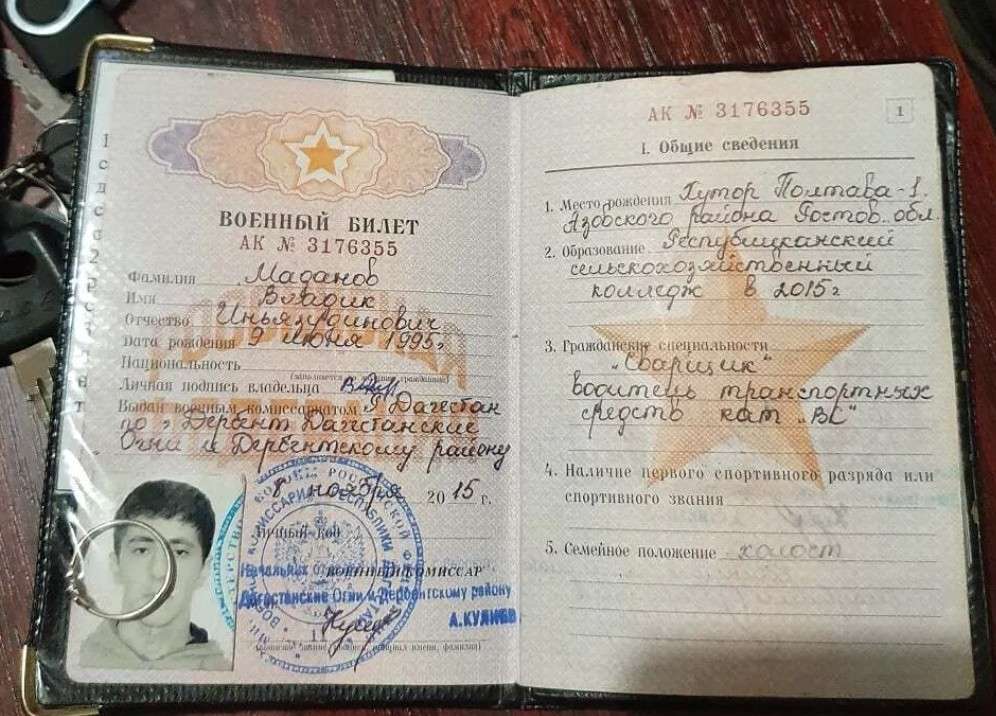 ВОЕННЫЙ БИЛЕТ
АК № 3176355
Фамилия Маданов
Имя Владик
Отчество Иньязудинович
Дата рождения 9 июня 1995г
Национальность
Личная подпись владельца
Выдан военным комиссариатом Р Дагестан
по г Дербент Дагестанские
Огни и Дербентскому району
8 ноября 2015 г.
Личный код
Начальник ВОЕННЫЙ КОМИССАР
Дагестанские Огни и Дербентскому району
А.КУЛИЕВ
АК № 3176355
1
I. Общие сведения
1. Место рождения Хутор Полтава-1.
Азовского района Ростов. обл.
2. Образование Республиканский
сельскохозяйственный
колледж в 2015г
3. Гражданские специальности
"Сварщик"
водитель транспортных
средств кат "ВС"
4. Наличие первого спортивного разряда или
спортивного звания
5. Семейное положение холост